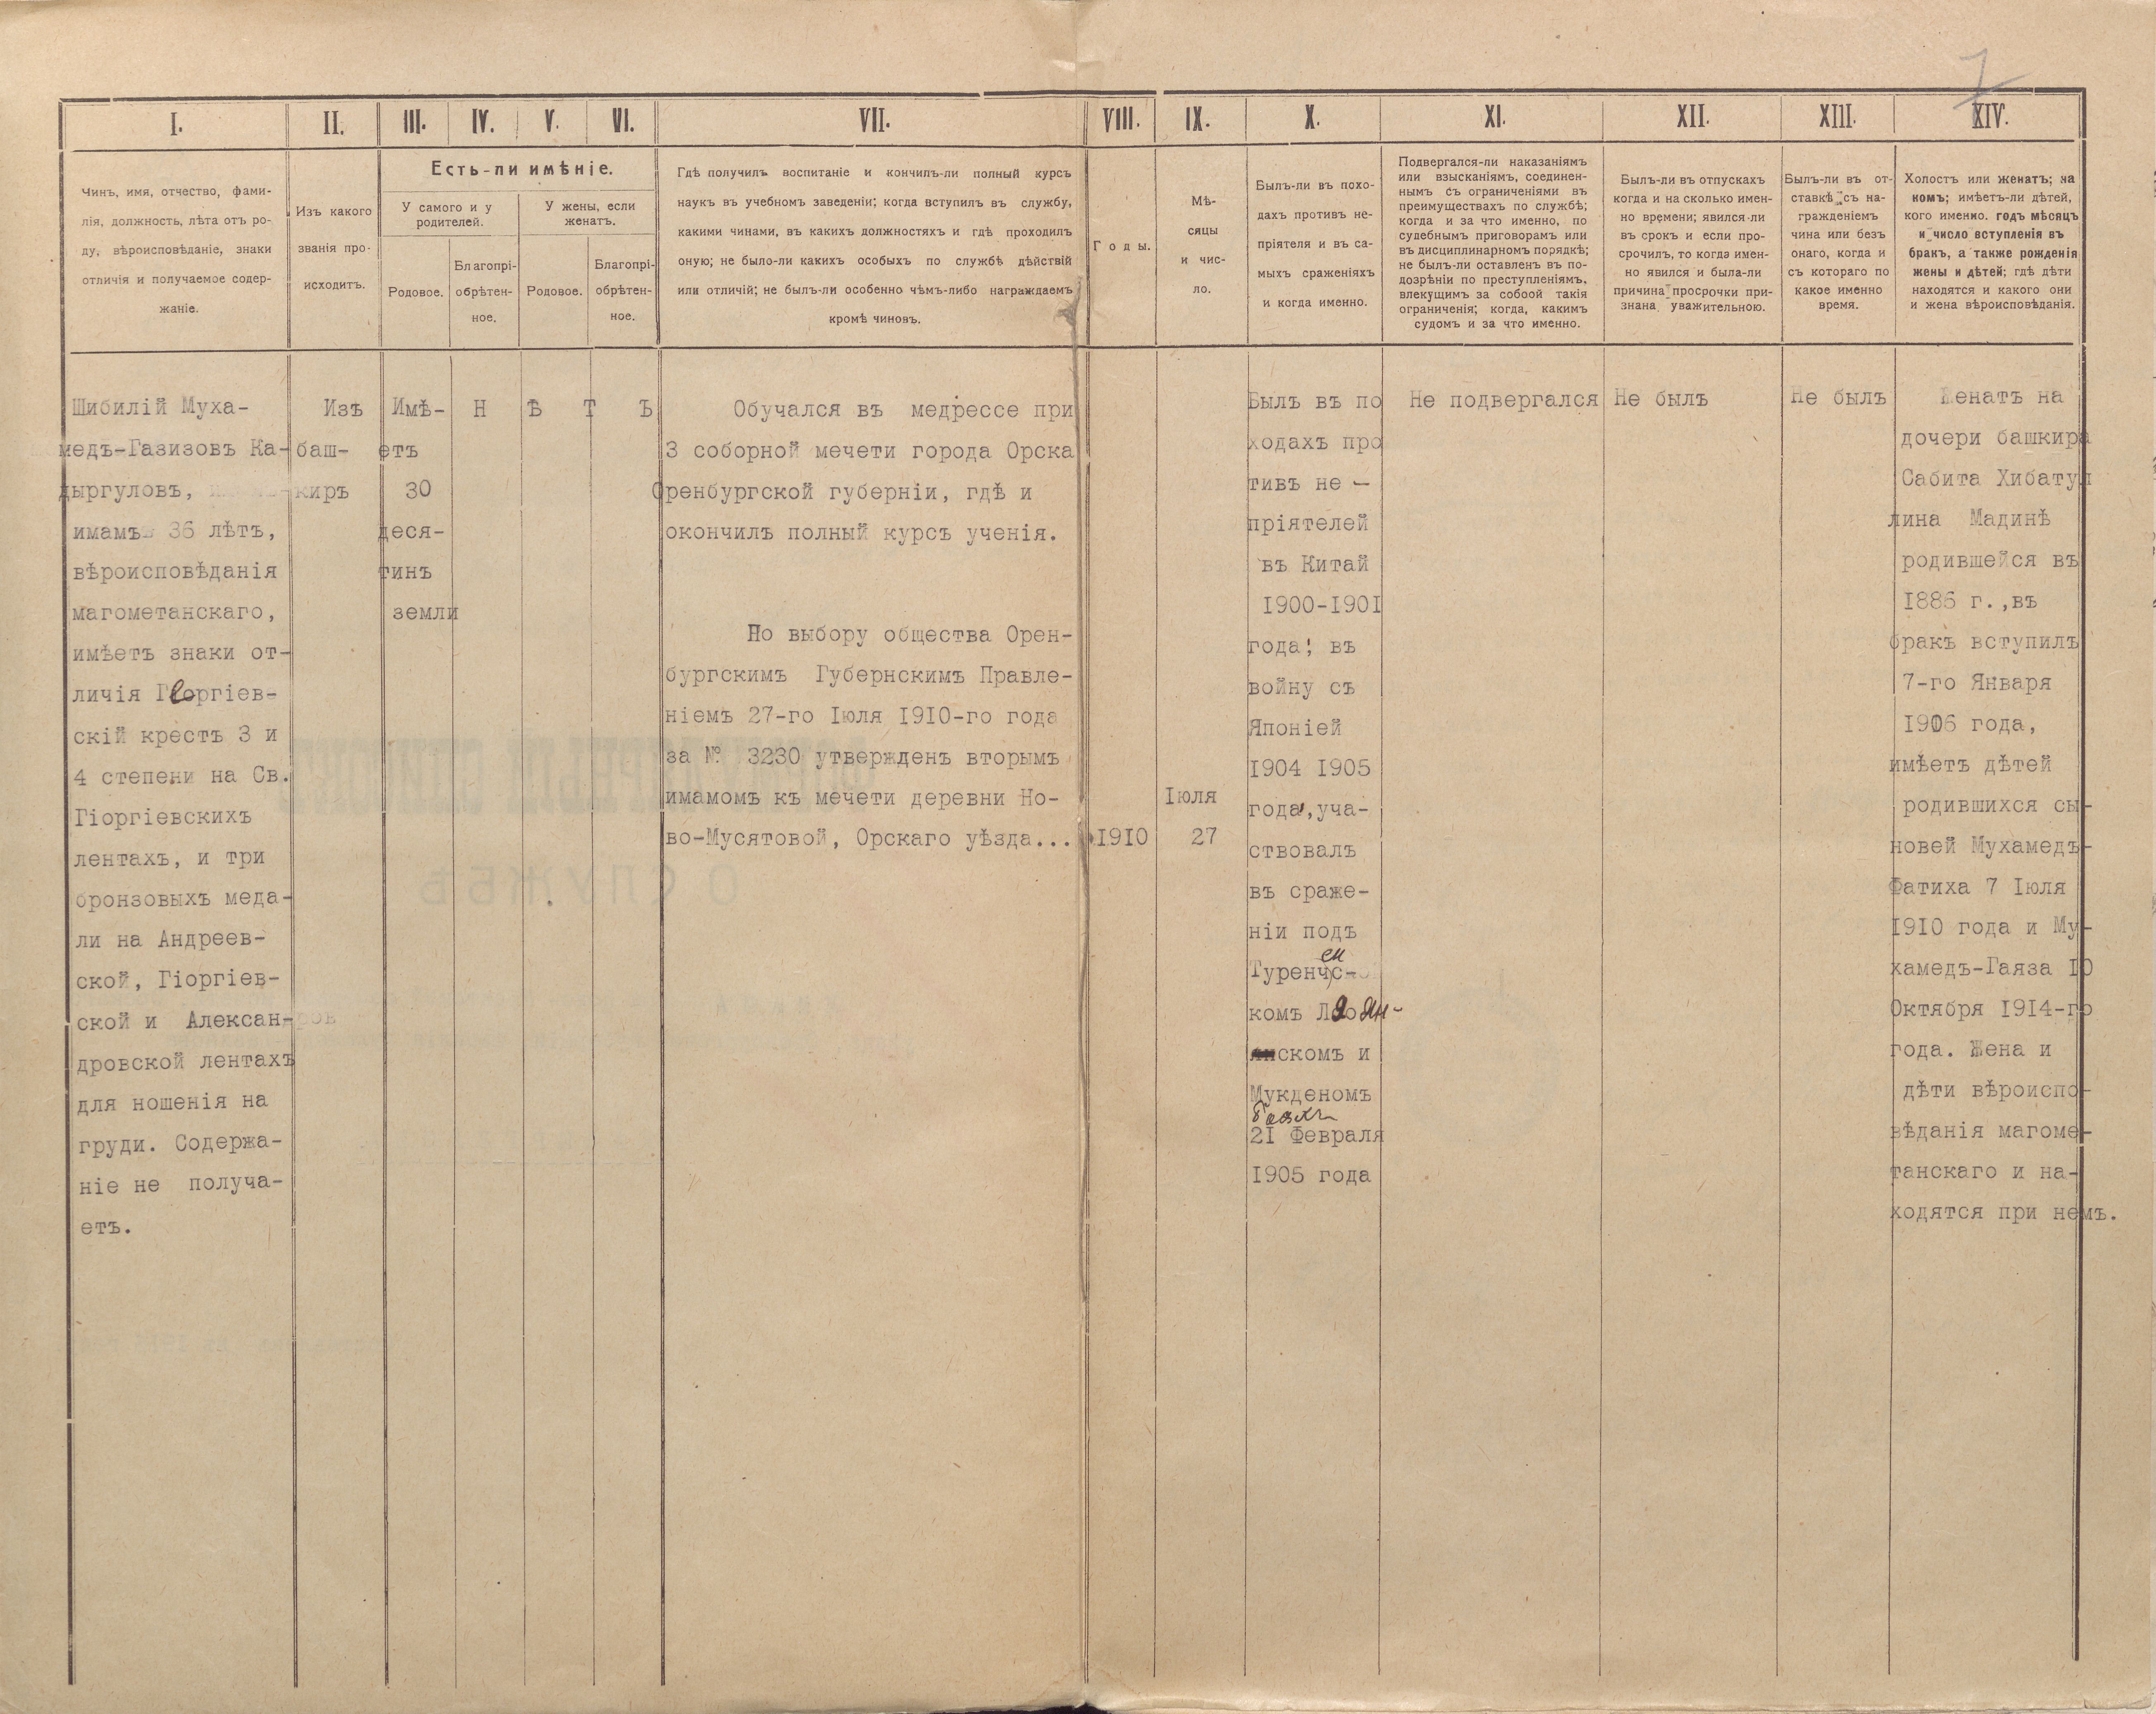 7
I.
II.
III.
IV.
V.
VI.
VII.
VIII.
IX.
X.
XI.
XII.
XIII.
XIV.
Чинъ, имя, отчество, фами-
лія, должность, лѣта отъ ро-
ду, вѣроисповѣданіе, знаки
отличія и получаемое содер-
жаніе.
Изъ какого
званія про-
исходитъ.
Есть-ли имѣніе.
У самого и у
родителей.
У жены, если
женатъ.
Родовое.
Благопрі-
обрѣтен-
ное.
Родовое.
Благопрі-
обрѣтен-
ное.
Гдѣ получилъ воспитаніе и кончилъ-ли полный курсъ
наукъ въ учебномъ заведеніи; когда вступилъ въ службу,
какими чинами, въ какихъ должностяхъ и гдѣ проходилъ
оную; не было-ли какихъ особыхъ по службѣ дѣйствій
или отличій; не былъ-ли особенно чѣмъ-либо награждаемъ
кромѣ чиновъ.
Годы.
Мѣ-
сяцы
и чис-
ло.
Былъ-ли въ похо-
дахъ противъ не-
пріятеля и въ са-
мыхъ сраженіяхъ
и когда именно.
Подвергался-ли наказаніямъ
или взысканіямъ, соединен-
нымъ съ ограниченіями въ
преимуществахъ по службѣ;
когда и за что именно, по
судебнымъ приговорамъ или
въ дисциплинарномъ порядкѣ;
не былъ-ли оставленъ въ по-
дозрѣніи по преступленіямъ,
влекущимъ за собой такія
ограниченія; когда, какимъ
судомъ и за что именно.
Былъ-ли въ отпускахъ
когда и на сколько имен-
но времени; явился-ли
въ срокъ и если про-
срочилъ, то когда имен-
но явился и была-ли
причина просрочки при-
знана уважительною.
Былъ-ли въ от-
ставкѣ съ на-
гражденіемъ
чина или безъ
онаго, когда и
съ котораго по
какое именно
время.
Холостъ или женатъ; на
комъ; имѣетъ-ли дѣтей,
кого именно. годъ мѣсяцъ
и число вступленія въ
бракъ, а также рожденія
жены и дѣтей; гдѣ дѣти
находятся и какого они
и жена вѣроисповѣданія.
Шибилій Муха-
медъ-Газизовъ Ка-
дыргуловъ,
имамъ 36 лѣтъ,
вѣроисповѣданія
магометанскаго,
имѣетъ знаки от-
личія Георгіев-
скій крестъ 3 и
4 степени на Св.
Гіоргіевскихъ
лентахъ, и три
бронзовыхъ меда-
ли на Андреев-
ской, Гіоргіев-
ской и Алексан-
дровской лентахъ
для ношенія на
груди. Содержа-
ніе не получа-
етъ.
Изъ
баш-
киръ
Имѣ-
етъ
30
деся-
тинъ
земли
Н Ѣ Т Ъ
Обучался въ медрессе при
3 соборной мечети города Орска
Оренбургской губерніи, гдѣ и
окончилъ полный курсъ ученія.
По выбору общества Орен-
бургскимъ Губернскимъ Правле-
ніемъ 27-го Іюля 1910-го года
за № 3230 утвержденъ вторымъ
имамомъ къ мечети деревни Но-
во-Мусятовой, Орскаго уѣзда...
1910
Іюля
27
Былъ въ по
ходахъ про
тивъ не -
пріятелей
въ Китай
1900-1901
года; въ
войну съ
Японіей
1904 1905
года, уча-
ствовалъ
въ сраже-
ніи подъ
ен
Туренчс-
комъ Ляоян-
скомъ и
Мукденомъ
21 Февраля
1905 года
Не подвергался
Не былъ
Не былъ
Женатъ на
дочери башкира
Сабита Хибатул
лина Мадинѣ
родившейся въ
1885 г.,въ
бракъ вступилъ
7-го Января
1906 года,
имѣетъ дѣтей
родившихся сы-
новей Мухамедъ-
Фатиха 7 Іюля
1910 года и Му-
хамедъ-Гаяза 10
Октября 1914-го
года. Жена и
дѣти вѣроиспо-
вѣданія магоме-
танскаго и на-
ходятся при немъ.